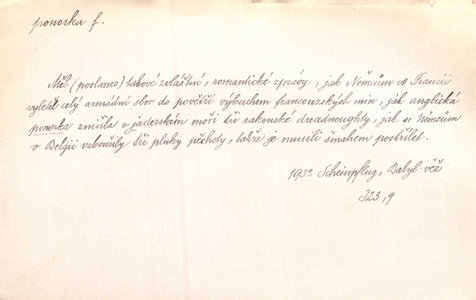 ponorka f.
Měl (poslanec) takové zvláštní, romantické zprávy, jak Němcům ve Francii
vyletěl celý armádní sbor do povětří výbuchem francouzských min, jak anglická
ponorka zničila v jaderském moři tři rakouské dreadnoughty, jak se Němcům
v Belgii vzbouřily tři pluky pěchoty, takže je musili šmahem postřílet.
1932 Scheinpflug, Babyl. věž
323, 9